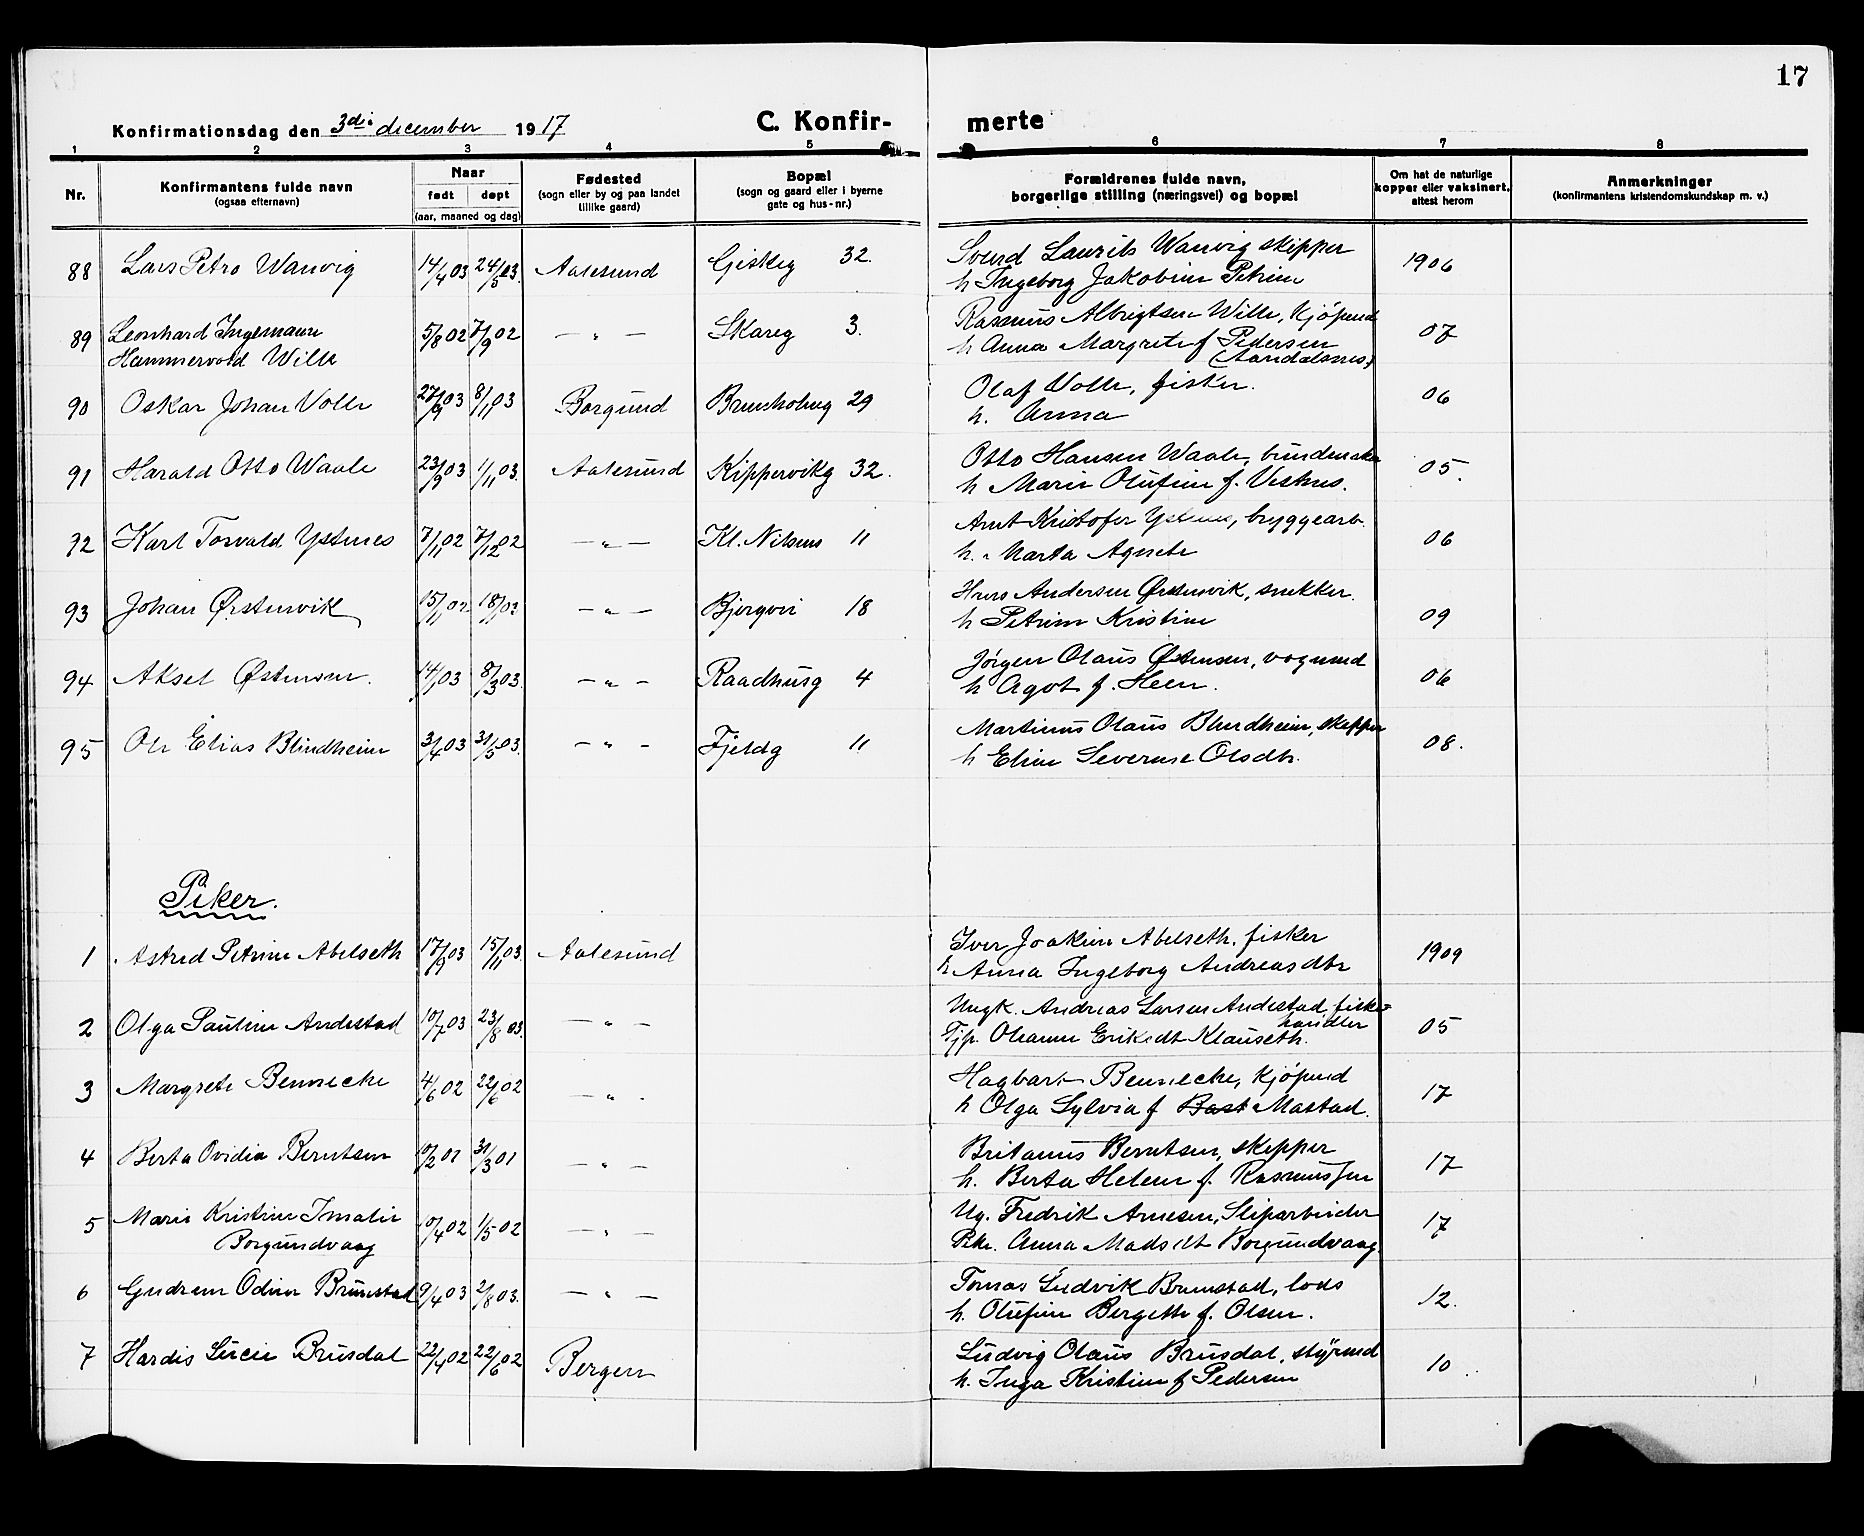 17
Konfirmationsdag den 3die december 1917
C. Konfir-
merte
1 2 3 4 5 6 7 8
Nr.
Konfirmantens fulde navn
(ogsaa efternavn)
Naar
født døpt
(aar, maaned og dag)
Fødested
(sogn eller by og paa landet
tillike gaard)
Bopæl
(sogn og gaard eller i byerne
gate og hus-nr.)
Forældrenes fulde navn,
borgerlige stilling (næringsvei) og bopæl
Om hat de naturlige
kopper eller vaksinert,
attest herom
Anmerkninger
(konfirmantens kristendomskundskap m. v.)
88 Lars Petro Wanvig 14/4 03 24/5 03. Aalesund Giskeg 32. Svend Laurits Wanvig skipper 1906
h Ingeborg Jakobine Petrine
89 Leonhard Ingemann 5/8 02 7/9 02 — " — Skareg 3. Rasmus Albrigtsen Wille, kjøpmd 07
Hammervold Wille h Anna Margrete f Pedersen
(Aandalsnes)
90 Oskar Johan Volle 27/9 03 8/11 03 Borgund Brunholmg 29 Olaf Volle, fisker. 06
h. Anna
91 Harald Otto Waale 23/9 03 1/11 03. Aalesund Kippervikg 32. Otto Hansen Waale, bundmaker 05.
h Marie Olufine f. Vestnes.
92 Karl Torvald Ystenes 7/11 02 7/12 02 — " — Kl. Nilsens 11 Arnt Kristofer Ystenes, bryggearb. 06
h. Marta Agnete
93 Johan Ørstenvik 15/11 02 — " — Bjergvei 18 Hans Andersen Ørstenvik, snekker. 09
h Petrine Kristine
94 Aksel Østensen. 14/1 03 8/3 03. — " — Raadhusg 4 Jørgen Olaus Østensen, vognmd 06
h Agot f. Heen.
95 Ole Elias Blindheim 3/4 03 31/5 03. — " — Fjeldg 11 Martinus Olaus Blindheim, skipper 08.
h Eline Severine Olsdtr.
Piker.
1 Astrid Petrine Abelseth 17/9 03 15/11 03. Aalesund Iver Joakim Abelseth, fisker 1909
h Anna Ingeborg Andreasdtr
2 Olga Pauline Andestad 10/7 03 23/8 03. — " — Ungk. Andreas Larsen Andestad, fiske-
handler 05
Tjp. Oleanne Eriksdt Klauseth.
3 Margrete Bennecke 4/6 02 22/6 02 — " — Hagbart Bennecke, kjøpmd 17
h Olga Sylvia f Bast Mastad.
4 Berta Ovidia Berntsen 10/2 01 31/3 01 — " — Britanus Berntsen, skipper 17
h. Berta Helene f. Rasmussen
5 Marie Kristine Imalie 10/4 02 1/5 02 — " — Ug. Fredrik Arnesen, Sliparbeider 17
Borgundvaag Pike. Anna Madsdt Borgundvaag.
6 Gudrun Odina Brunstad 9/4 03 2/8 03. — " — Tomas Ludvik Brunstad, lods 12.
h. Olufine Bergette f. Olsen.
7 Hardis Lucie Brusdal 22/4 02 22/6 02 Bergen Ludvig Olaus Brusdal, styrmd 10
h. Inga Kristine f Pedersen